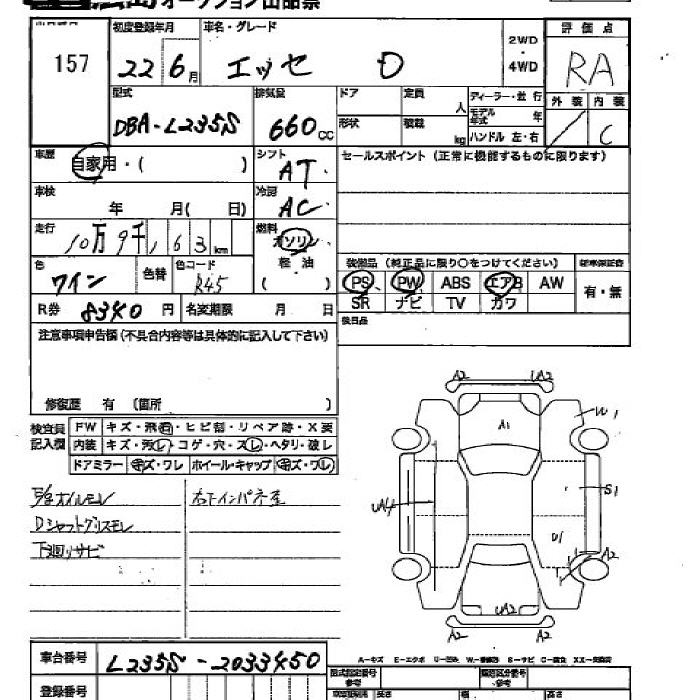 オークション出品票
出品番号 初度登録年月 車名・グレード 評価点
157 22年6月 エッセ D 2WD・4WD RA
型式 排気量 ドア 定員 人 ディーラー・並行 外装 内装
DBA-L235S 660cc 形状 積載 kg モデル年式 年 ハンドル 左・右 C
車歴 自家用・( ) シフト AT セールスポイント(正常に機能するものに限ります)
車検 年 月( 日) 冷房 AC
走行 10万9千,163km 燃料 ガソリン 軽油 ( )
装備品(純正品に限り○をつけてください) 新車保証書
色 ワイン 色替 色コード R45
PS、 PW ABS エアB AW 有・無
SR ナビ TV カワ
R券 8340円 名変期限 月 日 後日品
注意事項申告欄(不具合内容等は具体的に記入して下さい)
修復歴 有 (箇所 )
検査員記入欄 FW キズ・飛石・ヒビ割・リペア跡・X要
内装 キズ・汚レ・コゲ・穴・スレ・ヘタリ・破レ
ドアミラー キズ・ワレ ホイール・キャップ キズ・ワレ
オイルモレ
Dシャフトグリスモレ
下廻リサビ
A2 A2
A1
W1
UA4
S1
U1
A2
UA2
A2 A2
A-キズ E-エクボ U-凹み W-補修跡 S-サビ C-腐食 XX-交換済
車台番号 L235S-2033450
型式指定番号 参考 類別区分番号 参考
登録番号 長さ 幅 高さ